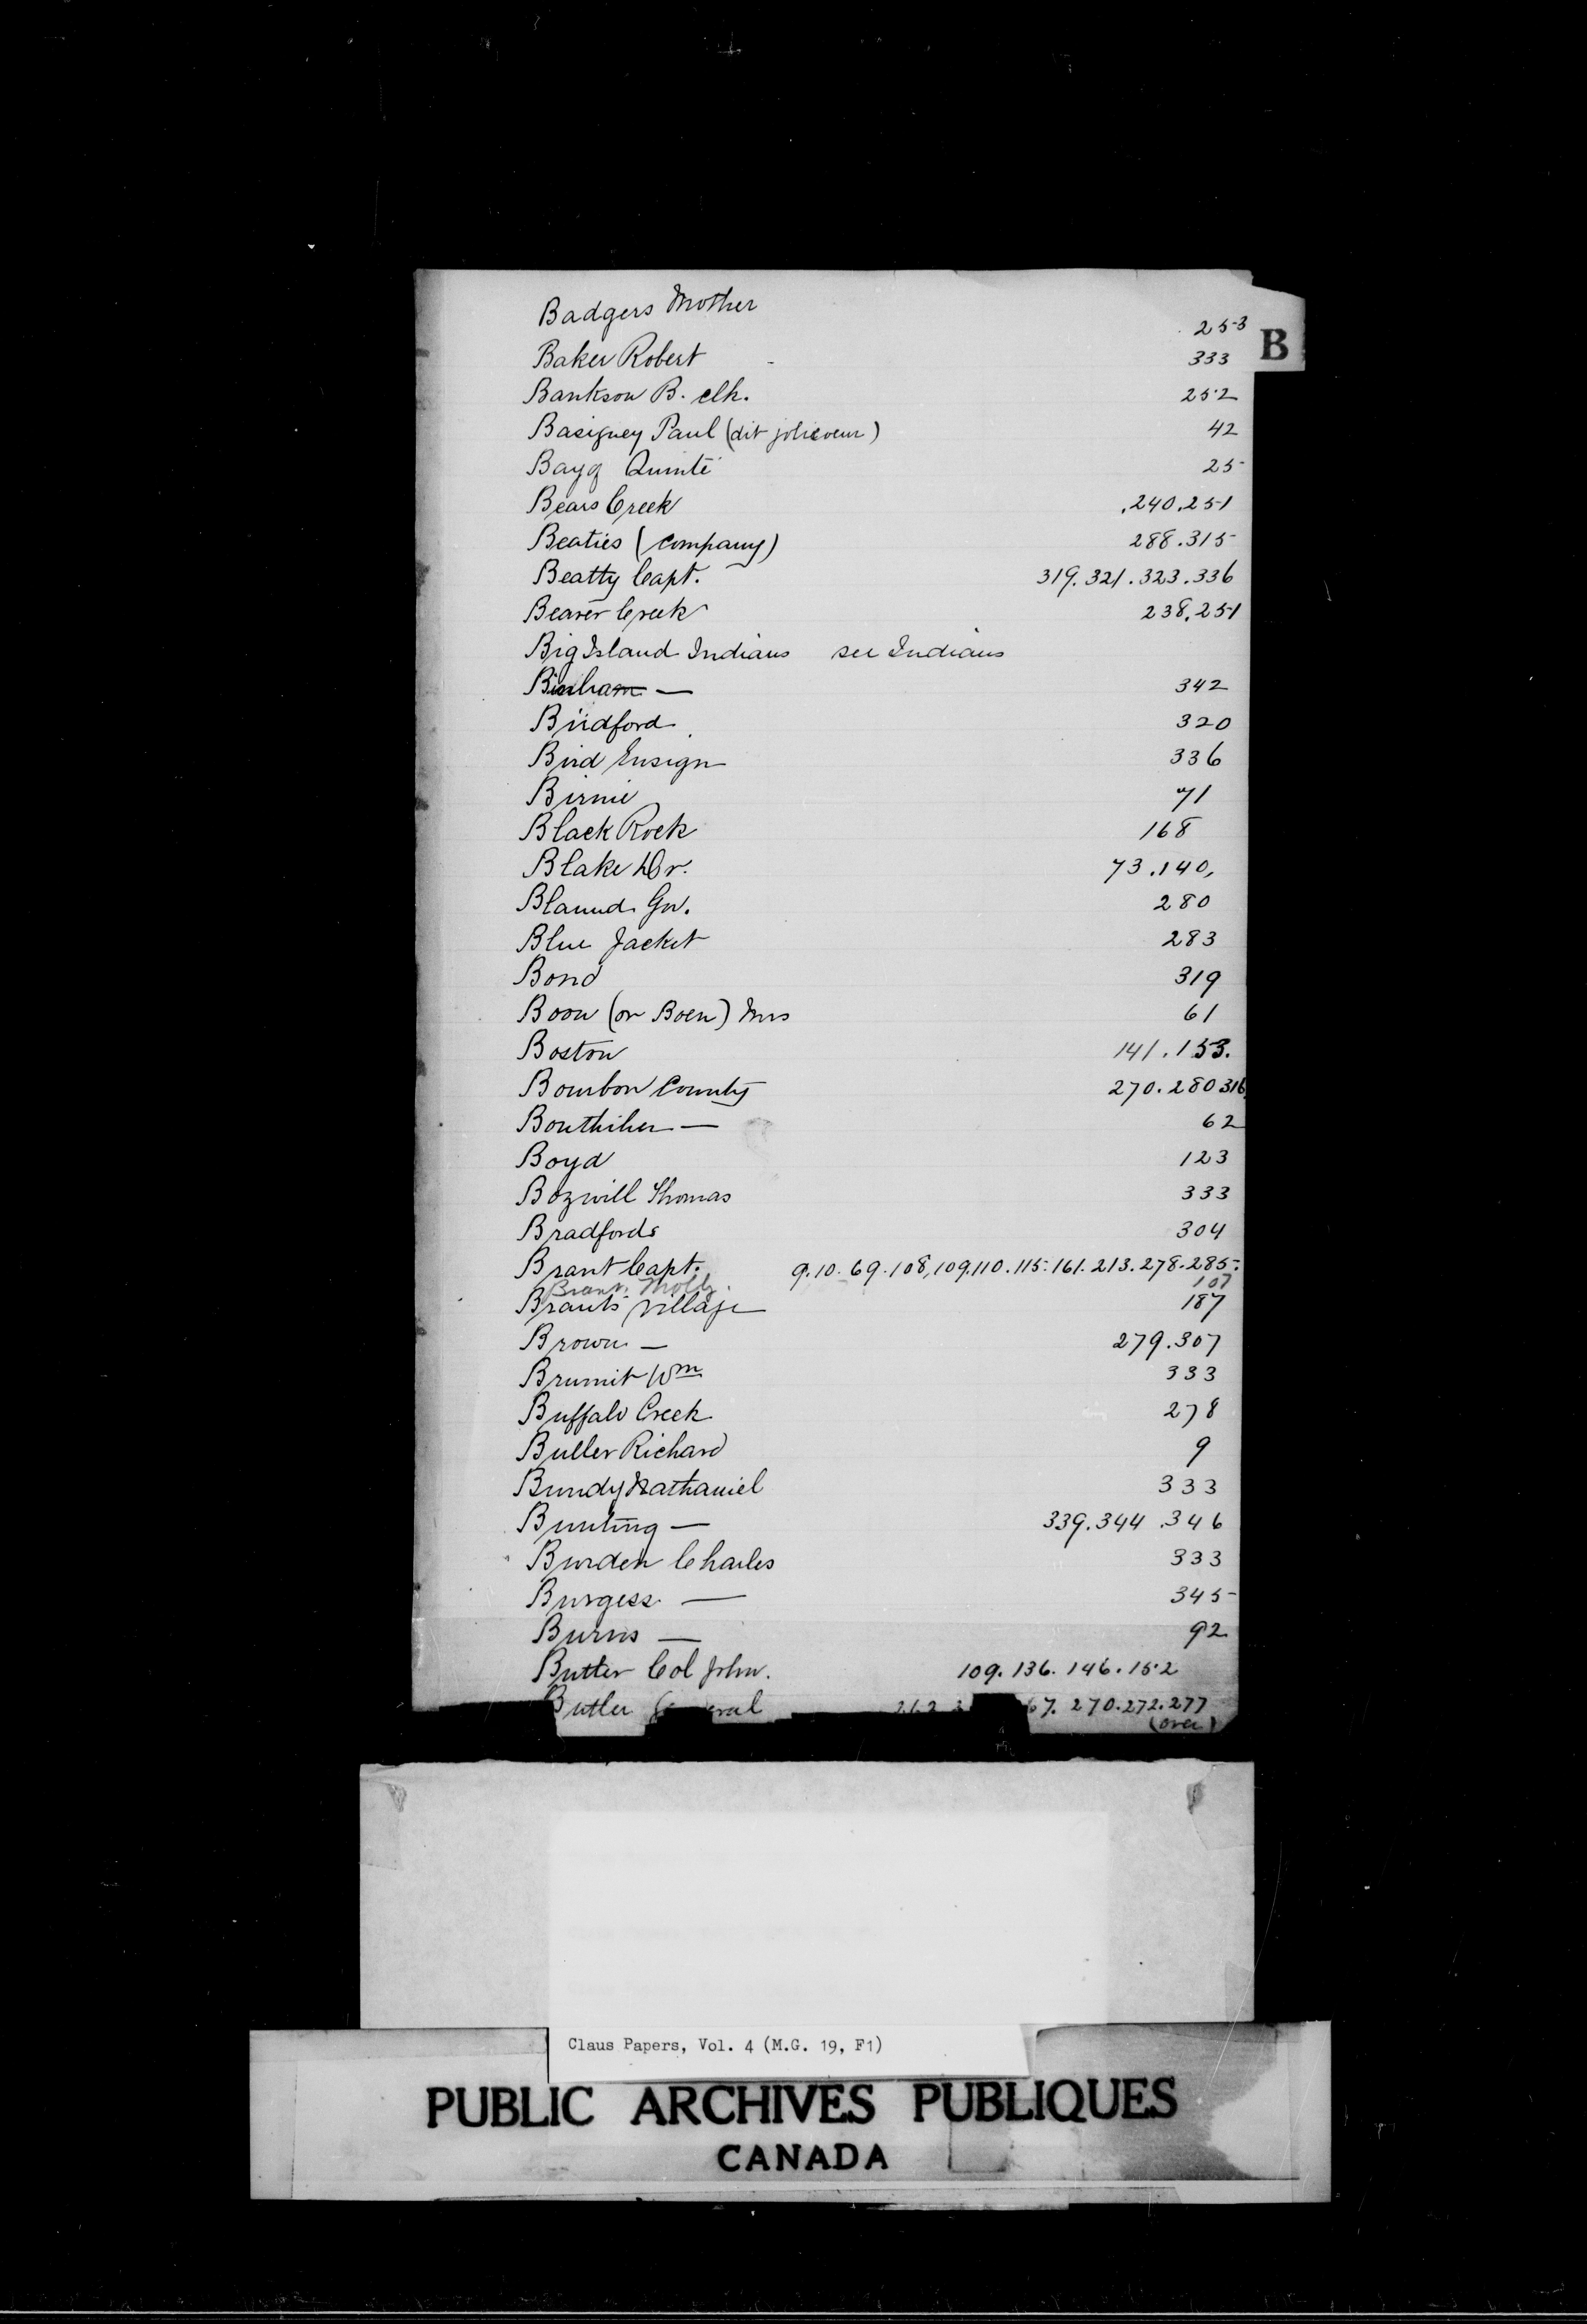 B
Badgers Mother 253
Baker Robert - 333
Bankson B. clk. 252
Basigney Paul (dit jolicoeur) 42
Bay of Quinté 25
Bears Creek .240.251
Beaties (Company) 288.315
Beatty Capt. 319.321.323.336
Beaver Creek 238.251
Big Island Indians see Indians
Binham — 342
Birdford 320
Bird Ensign 336
Birnie 71
Black Rock 168
Blake Dr. 73.140,
Blound Gov. 280
Blue Jacket 283
Bond 319
Boon (or Boen) Mrs 61
Boston 141.153.
Bourbon County 270.280 316
Bouthiher — 62
Boyd 123
Bozwill Thomas 333
Bradfords 304
Brant Capt. 9.10.69.108,109.110.115.161.213.278.285.
Brant Molly. 107
Brants Village 187
Brown — 279.307
Brumit Wm 333
Buffalo Creek 278
Buller Richard 9
Bundy Nathaniel 333
Bunting — 339.344.346
Burden Charles 333
Burgess — 345
Burns — 92
Butler Col John. 109.136.146.152
Butler 262 67.270.272.277
(over)
Claus Papers, Vol. 4 (M.G. 19, F1)
PUBLIC ARCHIVES PUBLIQUES
CANADA